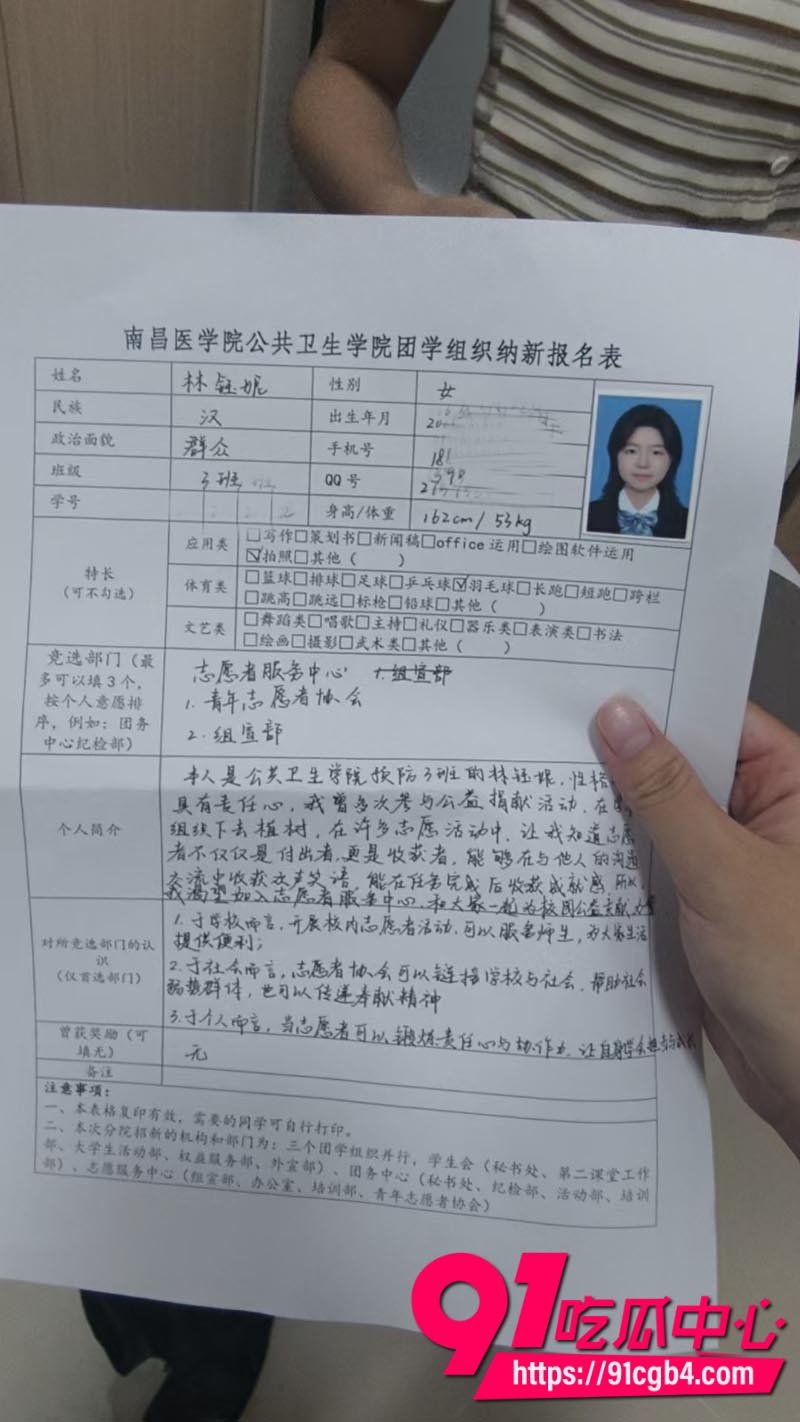 南昌医学院公共卫生学院团学组织纳新报名表
姓名 林钰妮 性别 女
民族 汉 出生年月
政治面貌 群众 手机号
班级 3班 QQ号
学号 身高/体重 162cm/53kg
特长
(可不勾选)
应用类 □写作□策划书□新闻稿□office 运用□绘图软件运用
☑拍照□其他( )
体育类 □篮球□排球□足球□乒乓球☑羽毛球□长跑□短跑□跨栏
□跳高□跳远□标枪□铅球□其他( )
文艺类 □舞蹈类□唱歌□主持□礼仪□器乐类□表演类□书法
□绘画□摄影□武术类□其他( )
竞选部门(最
多可以填3个,
按个人意愿排
序,例如:团务
中心纪检部)
志愿者服务中心 1.组宣部
1.青年志愿者协会
2.组宣部
个人简介
本人是公共卫生学院预防3班的林钰妮,性格
具有责任心,我曾多次参与公益捐献活动,在
组织下去植树,在许多志愿活动中,让我知道志愿
者不仅仅是付出者,更是收获者,能够在与他人的沟通
交流中收获欢声笑语,能在任务完成后收获成就感,所以
我渴望加入志愿者服务中心,和大家一起为校园公益贡献力量
对所竞选部门的认
识
(仅首选部门)
1.于学校而言,开展校内志愿者活动,可以服务师生,为大家生活
提供便利;
2.于社会而言,志愿者协会可以链接学校与社会,帮助社会
弱势群体,也可以传递奉献精神
3.于个人而言,当志愿者可以锻炼责任心与协作力,让自身学会担当与成长
曾获奖励(可
填无)
无
备注
注意事项:
一、本表格复印有效,需要的同学可自行打印。
二、本次分院招新的机构和部门为:三个团学组织并行,学生会(秘书处、第二课堂工作
部、大学生活动部、权益服务部、外宣部)、团务中心(秘书处、纪检部、活动部、培训
部)、志愿服务中心(组宣部、办公室、培训部、青年志愿者协会)
91吃瓜中心
https://91cgb4.com